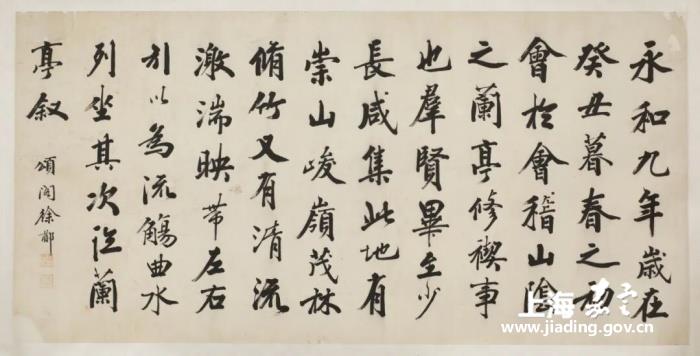 永和九年歲在
癸丑暮春之初
會於會稽山陰
之蘭亭修禊事
也羣賢畢至少
長咸集此地有
崇山峻嶺茂林
脩竹又有清流
激湍映帶左右
引以為流觴曲水
列坐其次臨蘭
亭叙
頌閣徐郙
上海嘉定
www.jiading.gov.cn